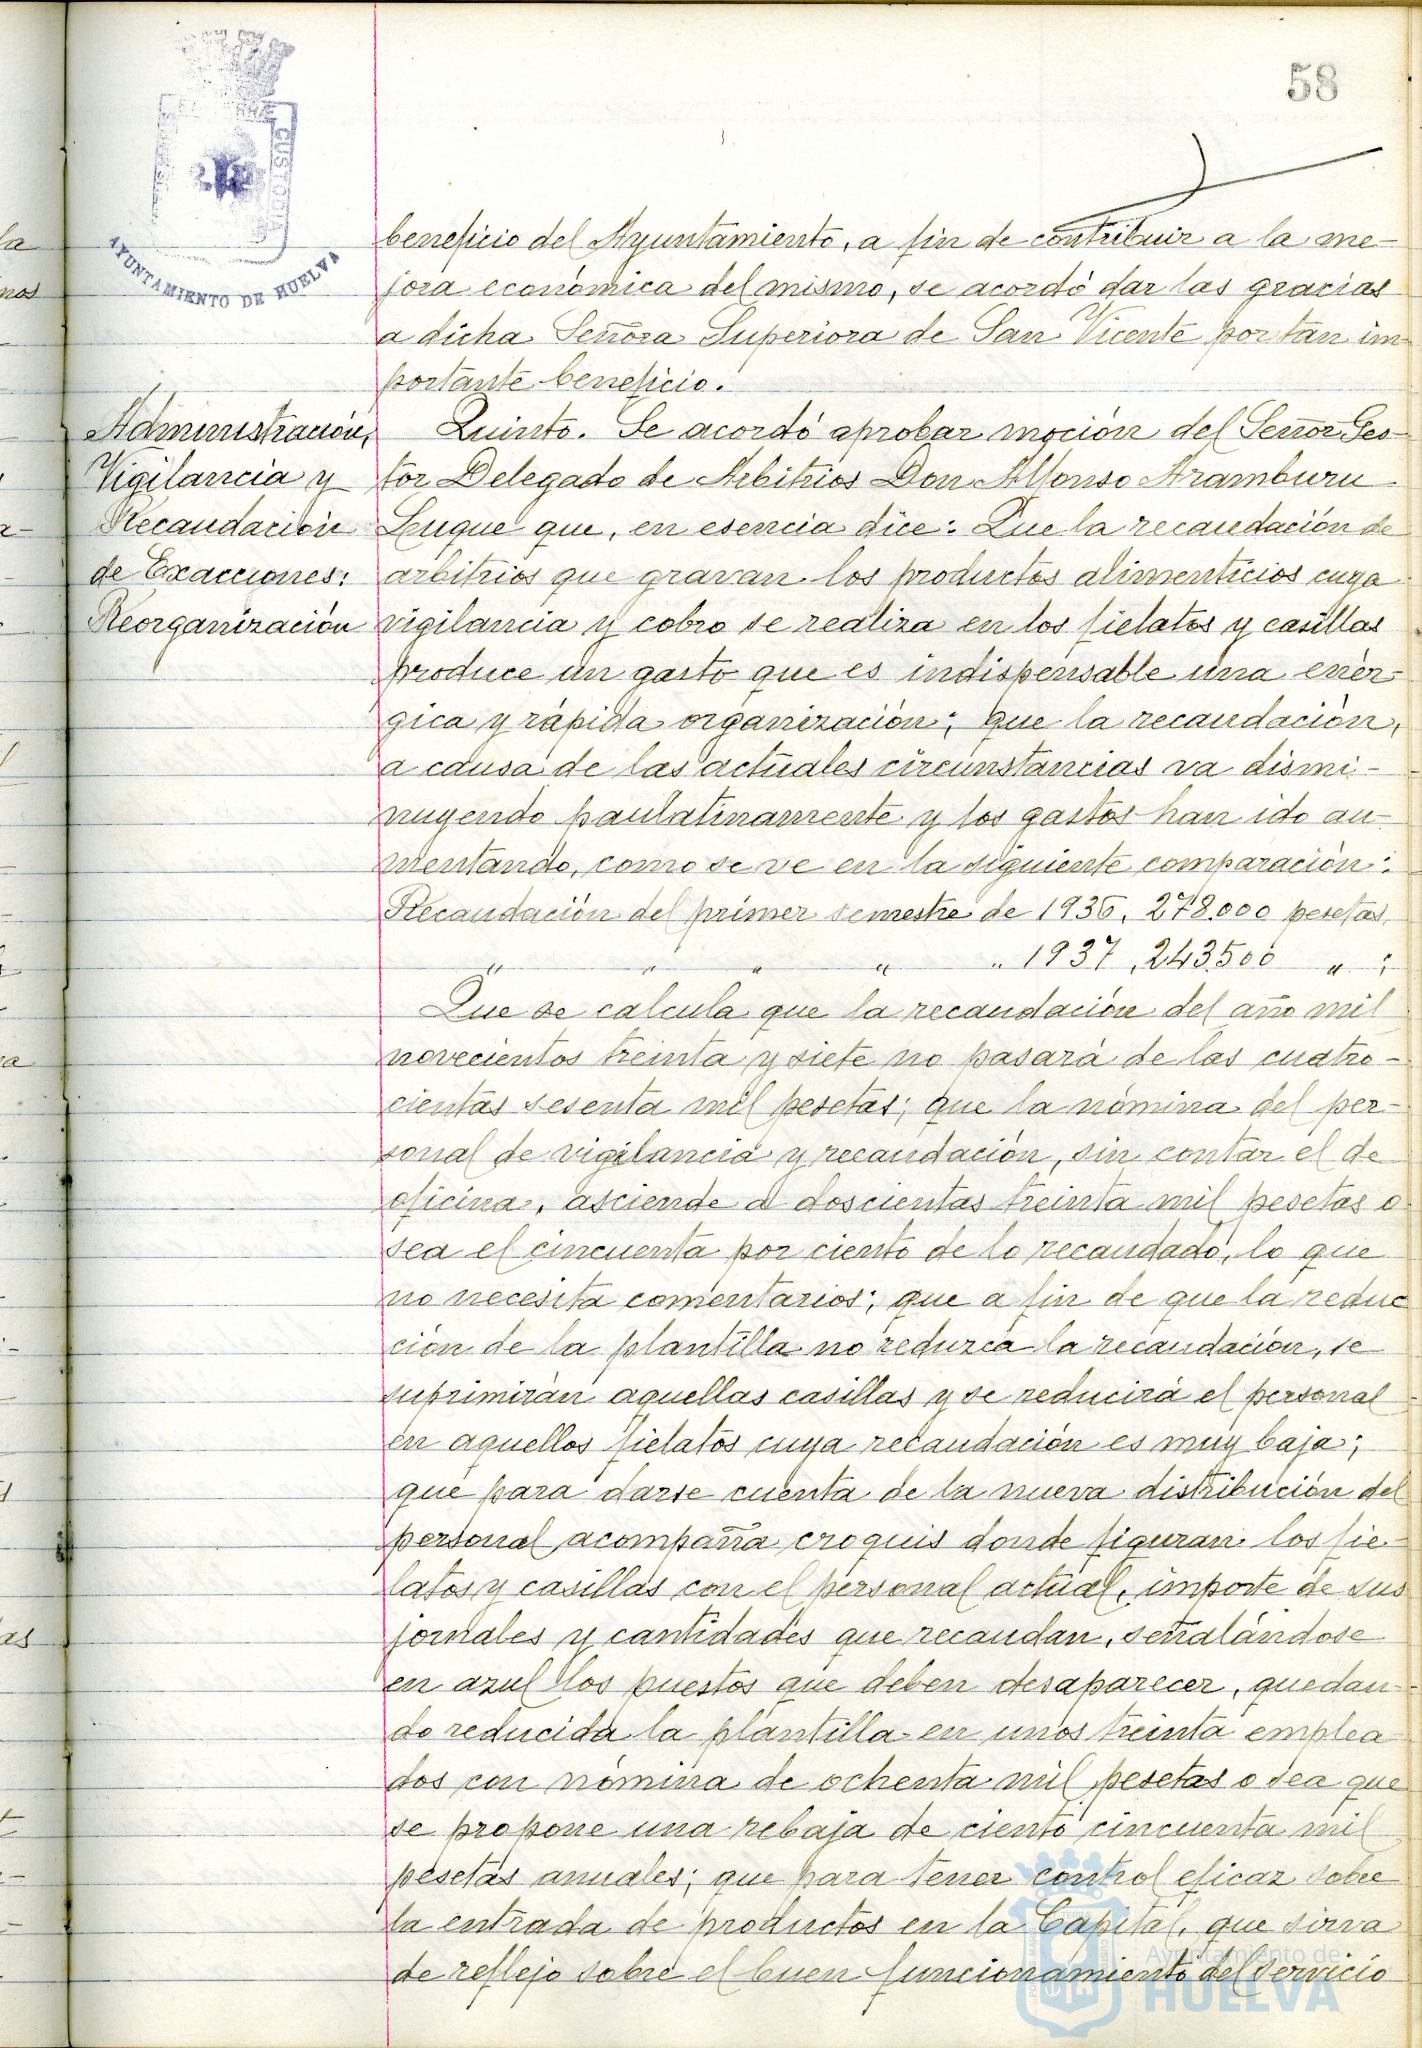 58
CUSTODIA
AYUNTAMIENTO DE HUELVA
beneficio del Ayuntamiento, a fin de contribuir a la me-
jora económica del mismo, se acordó dar las gracias
a dicha Señora Superiora de San Vicente por tan im-
portante beneficio.
Administración,
Vigilancia y
Recaudación
de Exacciones:
Reorganización
Quinto. Se acordó aprobar moción del Señor Ges-
tor Delegado de Arbitrios Don Alfonso Aramburu
Luque que, en esencia dice: Que la recaudación de
arbitrios que gravan los productos alimenticios cuya
vigilancia y cobro se realiza en los fielatos y casillas
produce un gasto que es indispensable una enér-
gica y rápida organización; que la recaudación,
a causa de las actuales circunstancias va dismi-
nuyendo paulatinamente y los gastos han ido au-
mentando, como se ve en la siguiente comparación:
Recaudación del primer semestre de 1936, 278.000 pesetas
" " " " " 1937, 243.500 " ;
Que se calcula que la recaudación del año mil
novecientos treinta y siete no pasará de las cuatro-
cientas sesenta mil pesetas; que la nómina del per-
sonal de vigilancia y recaudación, sin contar el de
oficina, asciende a doscientas treinta mil pesetas o
sea el cincuenta por ciento de lo recaudado, lo que
no necesita comentarios; que a fin de que la reduc
ción de la plantilla no reduzca la recaudación, se
suprimirán aquellas casillas y se reducirá el personal
en aquellos fielatos cuya recaudación es muy baja;
que para darse cuenta de la nueva distribución del
personal acompaña croquis donde figuran los fie-
latos y casillas con el personal actual, importe de sus
jornales y cantidades que recaudan, señalándose
en azul los puestos que deben desaparecer, quedan-
do reducida la plantilla en unos treinta emplea
dos con nómina de ochenta mil pesetas o sea que
se propone una rebaja de ciento cincuenta mil
pesetas anuales; que para tener control eficaz sobre
la entrada de productos en la Capital, que sirva
de reflejo sobre el buen funcionamiento del servicio
Ayuntamiento de
HUELVA